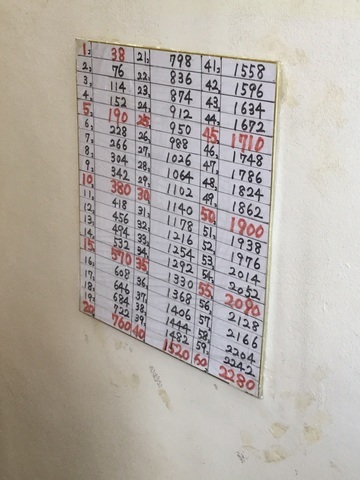 1: 38 21: 798 41: 1558
2: 76 22: 836 42: 1596
3: 114 23: 874 43: 1634
4: 152 24: 912 44: 1672
5: 190 25: 950 45: 1710
6: 228 26: 988 46: 1748
7: 266 27: 1026 47: 1786
8: 304 28: 1064 48: 1824
9: 342 29: 1102 49: 1862
10: 380 30: 1140 50: 1900
11: 418 31: 1178 51: 1938
12: 456 32: 1216 52: 1976
13: 494 33: 1254 53: 2014
14: 532 34: 1292 54: 2052
15: 570 35: 1330 55: 2090
16: 608 36: 1368 56: 2128
17: 646 37: 1406 57: 2166
18: 684 38: 1444 58: 2204
19: 722 39: 1482 59: 2242
20: 760 40: 1520 60: 2280